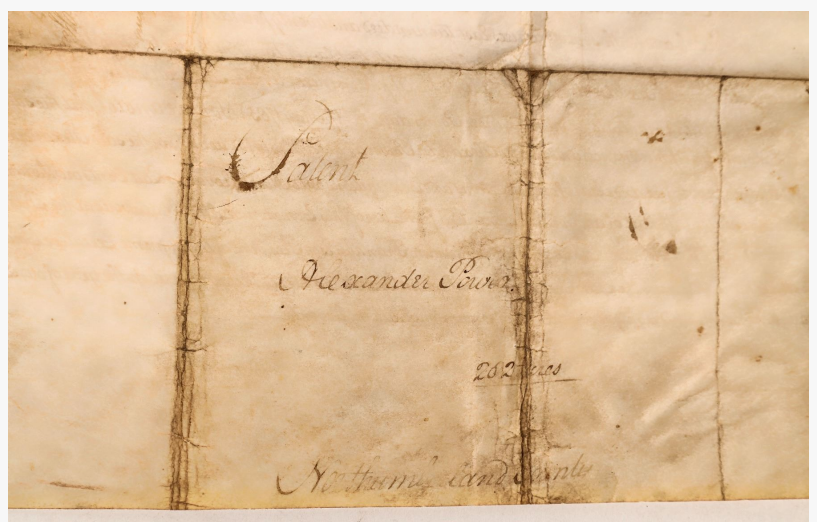 Patent
Alexander Power
282 acres
Northumberland County